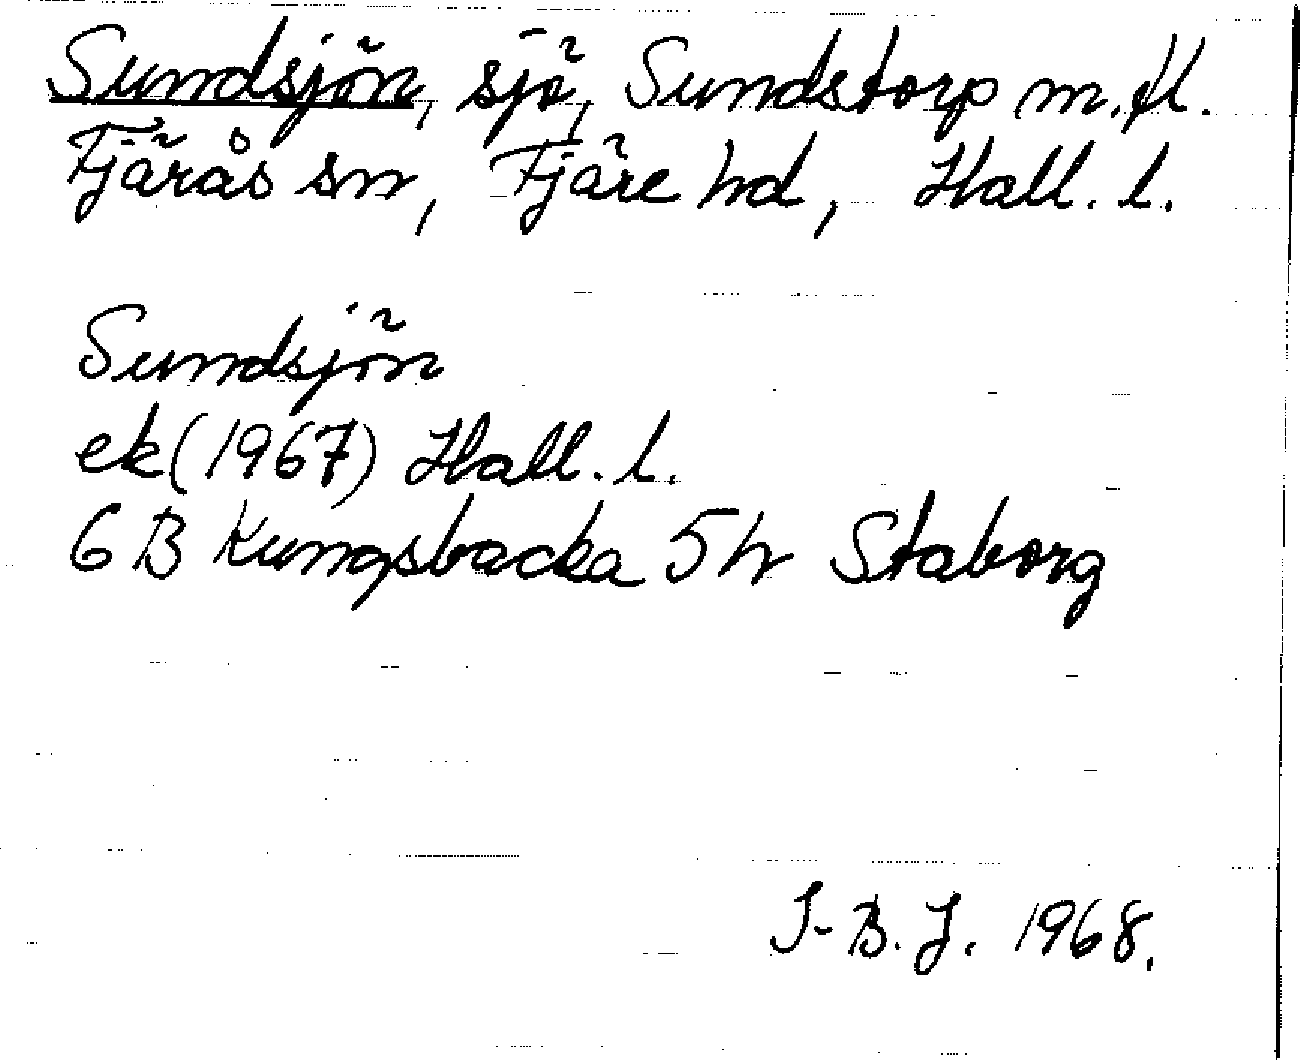 Sundsjön, sjö, Sundstorp m.fl.
Fjärås sn, Fjäre hd, Hall. l.
Sundsjön
ek (1967) Hall. l.
6 B Kungsbacka 5h Staborg
I-B. J. 1968.